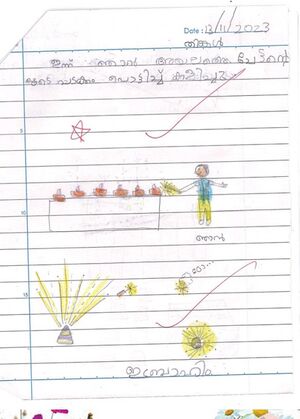 Date: 13/11/2023
തിങ്കൾ
ഇന്ന് ഞാൻ അയലത്തെ ചേട്ടന്റെ
കൂടെ പടക്കം പൊട്ടിച്ച് കളിച്ചു.
5
10
ഞാൻ
15
ഇബ്രാഹിം